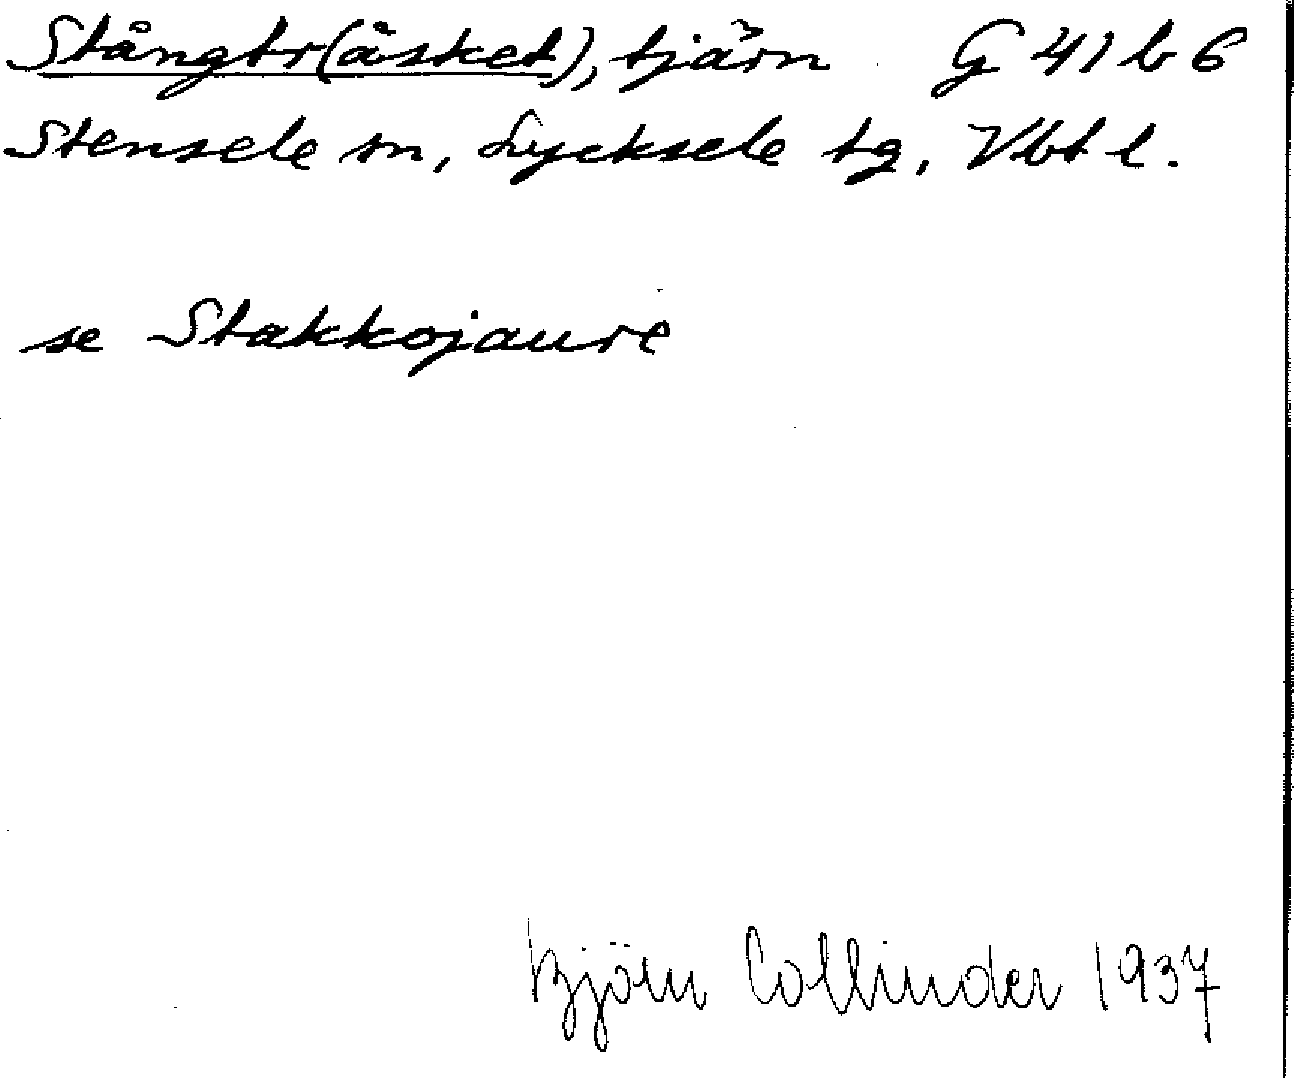 Stångtr(äsket), tjärn G 41 b 6
Stensele sn, Lycksele tg, Vbt l.
se Stakkojaure
Björn Collinder 1937